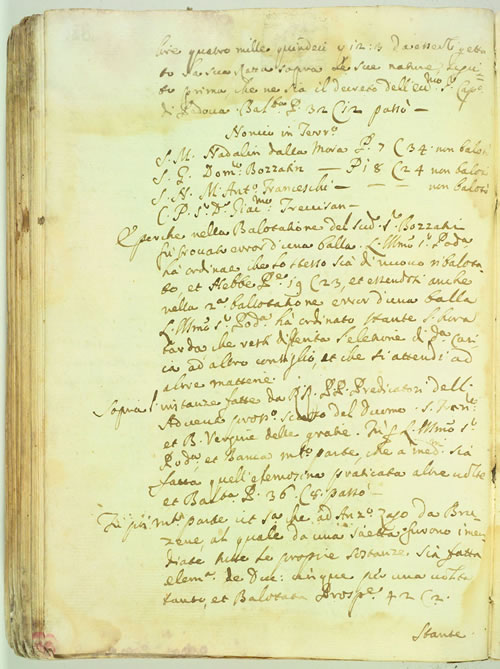 lire quatro mille quindeci y 12:3 da esser
to la sua rata sopra le sue nature,
to prima che ne sia il decreto dell'
di Padova Bal:ta P. 32 C 12 passò —
Noncio in Terr:o
S. M. Nadalin dalla Mora P. 7 C 34 non balot
S. G. Dom:o Bozzatin — P 18 C 24 non balot
S. N. M. Ant:o Franceschi — — — non balot
C. P. S:r D: Giac:mo Trevisan —
E perche nella Balotatione del sud:o S:r Bozzatin
fù trovato error d'una balla. L. Illmo S:r Podà
hà ordinato che lo stesso sia di nuovo ribalota
to, et Hebbe P:e 19 C 23, et essendosi anche
nella 2:a ballotatione error d'una balla
L. Illmo S:r Podà hà ordinato stante l'hora
tarda che resti differita la eletione di d:a cari
ca ad altro consiglio, et che si attendi ad
altre materie.
Sopra l'instanze fatte da RR. PP. Predicatori dell'
Advento pross:o scorso del Duomo, S.
et B. Vergine delle gratie. L. Illmo S:r
Podà, et Banca m:to parte, che a med:i sia
fatta quell'elemosina praticata altre volte
et Bal:ta P. 36 C 8. passò —
Fù più m:to parte, che, ad Ant:o Zago da
al quale da una saetta furono ince
diate tutte le proprie sostanze. Sia fatta
elem:a de Duc: cinque per una volta
tanto, et Balotata Prosp:e 42 C 2.
Stante